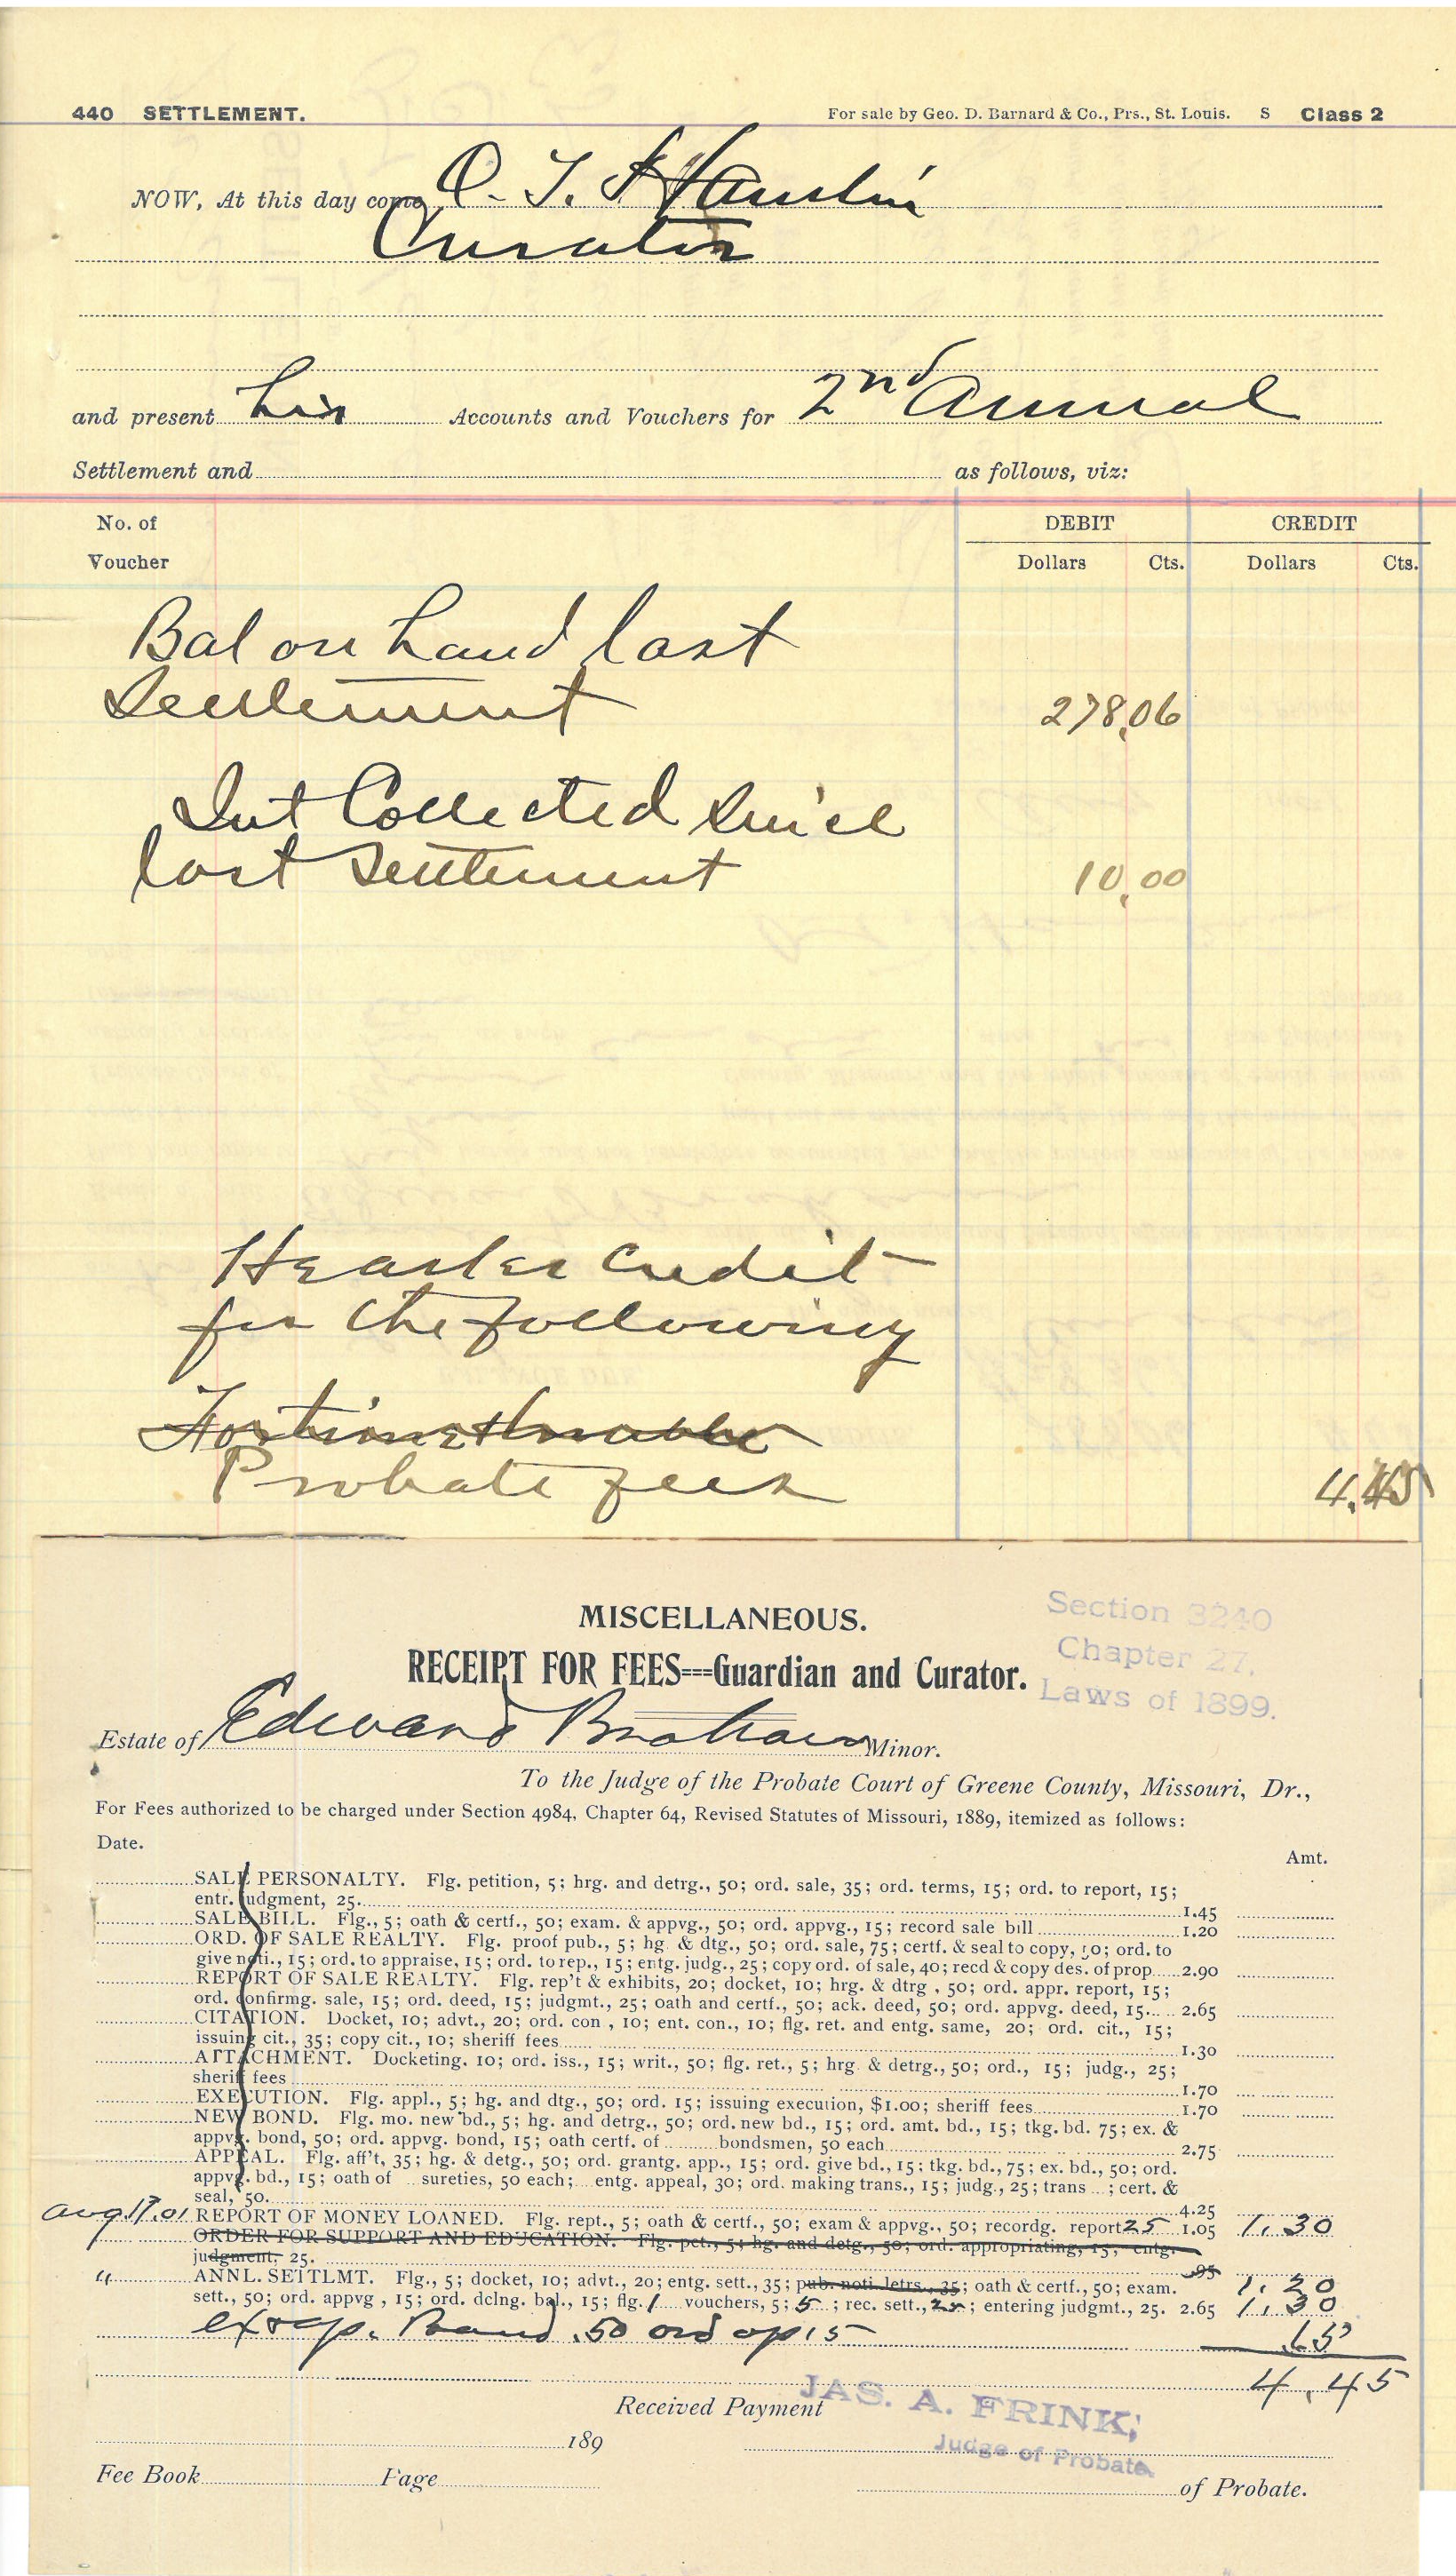 440 SETTLEMENT. For sale by Geo. D. Barnard & Co., Prs., St. Louis. S Class 2
NOW, At this day come O. T. Hamlin
Curator
and present his Accounts and Vouchers for 2nd Annual
Settlement and as follows, viz:
No. of Voucher DEBIT CREDIT
Dollars Cts. Dollars Cts.
Bal on hand last
Settlement 278,06
Int Collected Since
last Settlement 10,00
He asks credit
for the following
For time & trouble
Probate fees 4.45
MISCELLANEOUS.
Section 3240
Chapter 27.
Laws of 1899.
RECEIPT FOR FEES---Guardian and Curator.
Estate of Edward Minor.
To the Judge of the Probate Court of Greene County, Missouri, Dr.,
For Fees authorized to be charged under Section 4984, Chapter 64, Revised Statutes of Missouri, 1889, itemized as follows:
Date. Amt.
SALE PERSONALTY. Flg. petition, 5; hrg. and detrg., 50; ord. sale, 35; ord. terms, 15; ord. to report, 15;
entr. judgment, 25. 1.45
SALE BILL. Flg., 5; oath & certf., 50; exam. & appvg., 50; ord. appvg., 15; record sale bill 1.20
ORD. OF SALE REALTY. Flg. proof pub., 5; hg. & dtg., 50; ord. sale, 75; certf. & seal to copy, 50; ord. to
give noti., 15; ord. to appraise, 15; ord. to rep., 15; entg. judg., 25; copy ord. of sale, 40; recd & copy des. of prop. 2.90
REPORT OF SALE REALTY. Flg. rep't & exhibits, 20; docket, 10; hrg. & dtrg , 50; ord. appr. report, 15;
ord. confirmg. sale, 15; ord. deed, 15; judgmt., 25; oath and certf., 50; ack. deed, 50; ord. appvg. deed, 15 2.65
CITATION. Docket, 10; advt., 20; ord. con , 10; ent. con., 10; flg. ret. and entg. same, 20; ord. cit., 15;
issuing cit., 35; copy cit., 10; sheriff fees 1.30
ATTACHMENT. Docketing. 10; ord. iss., 15; writ., 50; flg. ret., 5; hrg. & detrg., 50; ord., 15; judg., 25;
sheriff fees 1.70
EXECUTION. Flg. appl., 5; hg. and dtg., 50; ord. 15; issuing execution, $1.00; sheriff fees 1.70
NEW BOND. Flg. mo. new bd., 5; hg. and detrg., 50; ord. new bd., 15; ord. amt. bd., 15; tkg. bd. 75; ex. &
appvg. bond, 50; ord. appvg. bond, 15; oath certf. of bondsmen, 50 each 2.75
APPEAL. Flg. aff't, 35; hg. & detg., 50; ord. grantg. app., 15; ord. give bd., 15; tkg. bd., 75; ex. bd., 50; ord.
appvg. bd., 15; oath of sureties, 50 each; entg. appeal, 30; ord. making trans., 15; judg., 25; trans ; cert. &
seal, 50. 4.25
Aug. 17. 01 REPORT OF MONEY LOANED. Flg. rept., 5; oath & certf., 50; exam & appvg., 50; recordg. report 25 1.05 1.30
ORDER FOR SUPPORT AND EDUCATION. Flg. pet., 5; hg. and detg., 50; ord. appropriating, 15; entg.
judgment, 25. .95
" ANNL. SETTLMT. Flg., 5; docket, 10; advt., 20; entg. sett., 35; pub. noti. letrs., 35; oath & certf., 50; exam. 1.20
sett., 50; ord. appvg , 15; ord. dclng. bal., 15; flg. 1 vouchers, 5; 5 ; rec. sett., 25; entering judgmt., 25. 2.65 1.30
ex & ap. Bond .50 ord ap 15 .65
4.45
Received Payment
JAS. A. FRINK,
Judge of Probate.
189
Fee Book Page of Probate.